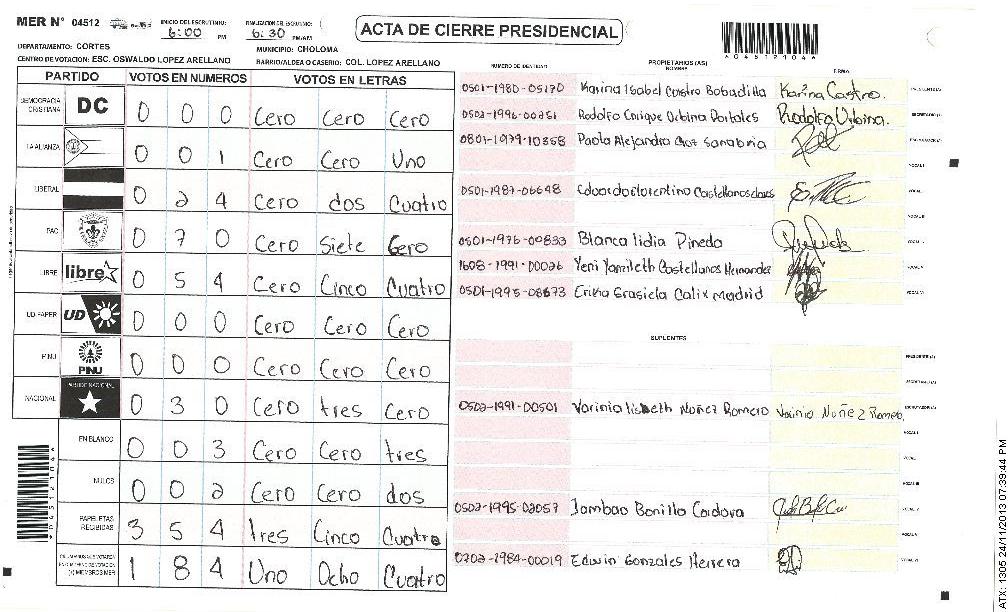 MER Nº 04512
INICIO DEL ESCRUTINIO: 6:00 PM
FINALIZACION DEL ESCRUTINIO: 6:30 PM/AM
ACTA DE CIERRE PRESIDENCIAL
*04512104*
DEPARTAMENTO: CORTES
MUNICIPIO: CHOLOMA
CENTRO DE VOTACION: ESC. OSWALDO LOPEZ ARELLANO
BARRIO/ALDEA O CASERIO: COL. LOPEZ ARELLANO
PARTIDO VOTOS EN NUMEROS VOTOS EN LETRAS
DEMOCRACIA CRISTIANA DC 0 0 0 Cero Cero Cero
LA ALIANZA 0 0 1 Cero Cero Uno
LIBERAL 0 2 4 Cero dos Cuatro
PAC 0 7 0 Cero Siete Cero
LIBRE libre 0 5 4 Cero Cinco Cuatro
UD FAPER UD 0 0 0 Cero Cero Cero
PINU PINU 0 0 0 Cero Cero Cero
NACIONAL PARTIDO NACIONAL 0 3 0 Cero tres Cero
EN BLANCO 0 0 3 Cero Cero tres
NULOS 0 0 2 Cero Cero dos
PAPELETAS RECIBIDAS 3 5 4 tres Cinco Cuatro
1 8 4 Uno Ocho Cuatro
NUMERO DE IDENTIDAD PROPIETARIOS (AS) NOMBRE FIRMA
0501-1980-05170 Karina Isabel Castro Bobadilla Karina Castro. PRESIDENTE (A)
0502-1996-00251 Rodolfo Enrique Urbina Portales Rodolfo Urbina. SECRETARIO (A)
0801-1979-10358 Paola Alejandra Cruz Sanabria ESCRUTADOR (A)
VOCAL I
0501-1987-06648 Edoardo florentino Castellanos VOCAL II
VOCAL III
0501-1976-00833 Blanca lidia Pineda VOCAL IV
1608-1991-00026 Yeni Yamileth Castellanos Hernandez VOCAL V
0501-1995-08673 Erika Grasiela Calix Madrid VOCAL VI
SUPLENTES
PRESIDENTE (A)
SECRETARIO (A)
0502-1991-00501 Varinia lisbeth Nuñez Romero Varinia Nuñez Romero ESCRUTADOR (A)
VOCAL I
VOCAL II
VOCAL III
0502-1995-02057 Jambao Bonilla Cordova VOCAL IV
VOCAL V
0202-1984-00019 Edwin Gonzales Herrera VOCAL VI
*04512104*
ATX: 1305 24/11/2013 07:39:44 PM